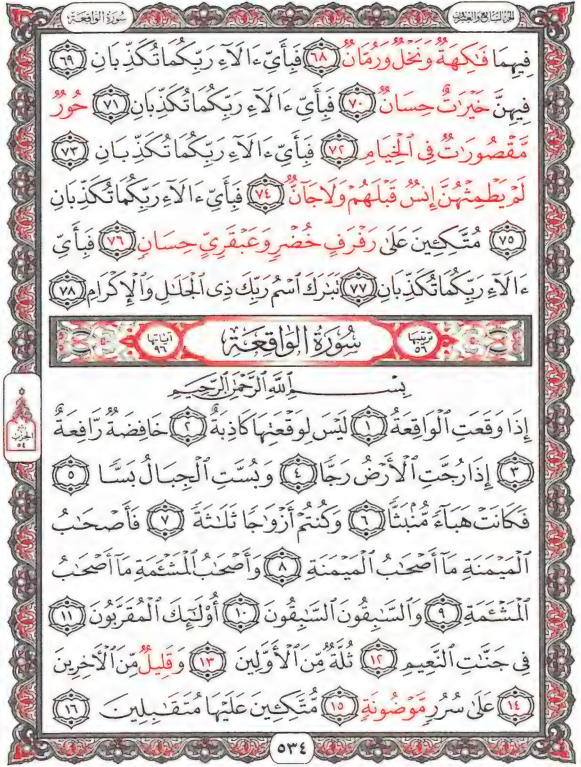 سُورَةُ الوَاقِعَة الجزء السابع والعشرون
فِيهِمَا فَٰكِهَةٌ وَنَخْلٌ وَرُمَّانٌ ٦٨ فَبِأَيِّ ءَالَآءِ رَبِّكُمَا تُكَذِّبَانِ ٦٩
فِيهِنَّ خَيْرَٰتٌ حِسَانٌ ٧٠ فَبِأَيِّ ءَالَآءِ رَبِّكُمَا تُكَذِّبَانِ ٧١ حُورٌ
مَّقْصُورَٰتٌ فِى ٱلْخِيَامِ ٧٢ فَبِأَيِّ ءَالَآءِ رَبِّكُمَا تُكَذِّبَانِ ٧٣
لَمْ يَطْمِثْهُنَّ إِنسٌ قَبْلَهُمْ وَلَا جَآنٌّ ٧٤ فَبِأَيِّ ءَالَآءِ رَبِّكُمَا تُكَذِّبَانِ
٧٥ مُتَّكِـِٔينَ عَلَىٰ رَفْرَفٍ خُضْرٍ وَعَبْقَرِىٍّ حِسَانٍ ٧٦ فَبِأَيِّ
ءَالَآءِ رَبِّكُمَا تُكَذِّبَانِ ٧٧ تَبَٰرَكَ ٱسْمُ رَبِّكَ ذِى ٱلْجَلَٰلِ وَٱلْإِكْرَامِ ٧٨
ترتيبها ٥٦ سُورَةُ الوَاقِعَةِ آياتها ٩٦
بِسْمِ ٱللَّهِ ٱلرَّحْمَٰنِ ٱلرَّحِيمِ
إِذَا وَقَعَتِ ٱلْوَاقِعَةُ ١ لَيْسَ لِوَقْعَتِهَا كَاذِبَةٌ ٢ خَافِضَةٌ رَّافِعَةٌ
٣ إِذَا رُجَّتِ ٱلْأَرْضُ رَجًّا ٤ وَبُسَّتِ ٱلْجِبَالُ بَسًّا ٥
فَكَانَتْ هَبَآءً مُّنۢبَثًّا ٦ وَكُنتُمْ أَزْوَٰجًا ثَلَٰثَةً ٧ فَأَصْحَٰبُ
ٱلْمَيْمَنَةِ مَآ أَصْحَٰبُ ٱلْمَيْمَنَةِ ٨ وَأَصْحَٰبُ ٱلْمَشْـَٔمَةِ مَآ أَصْحَٰبُ
ٱلْمَشْـَٔمَةِ ٩ وَٱلسَّٰبِقُونَ ٱلسَّٰبِقُونَ ١٠ أُو۟لَٰٓئِكَ ٱلْمُقَرَّبُونَ ١١
فِى جَنَّٰتِ ٱلنَّعِيمِ ١٢ ثُلَّةٌ مِّنَ ٱلْأَوَّلِينَ ١٣ وَقَلِيلٌ مِّنَ ٱلْءَاخِرِينَ
١٤ عَلَىٰ سُرُرٍ مَّوْضُونَةٍ ١٥ مُّتَّكِـِٔينَ عَلَيْهَا مُتَقَٰبِلِينَ ١٦
الحزب ٥٤
٥٣٤